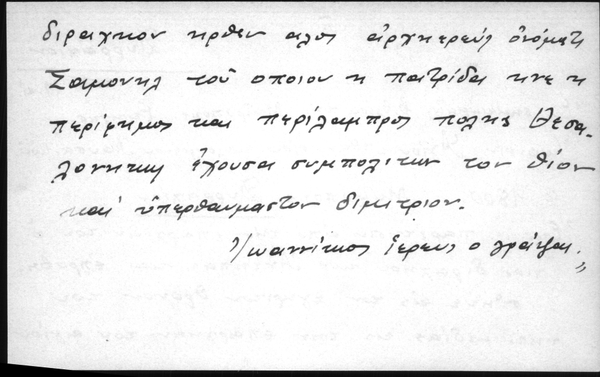 διραχιον ηρθεν αλος ἀρχηερεὺς ὀνόματι
Σαμουηλ τοῦ οποιου η πατρίδα ηνε η
περίφημος και περίλαμπρος πολης Θεσα
λονηκη ἔχουσα συμπολιτην τον θίον
καί ὑπερθαυμαστον διμιτριον.
Ἰωαννίκιος ἱερεὺς ο γράψας.»